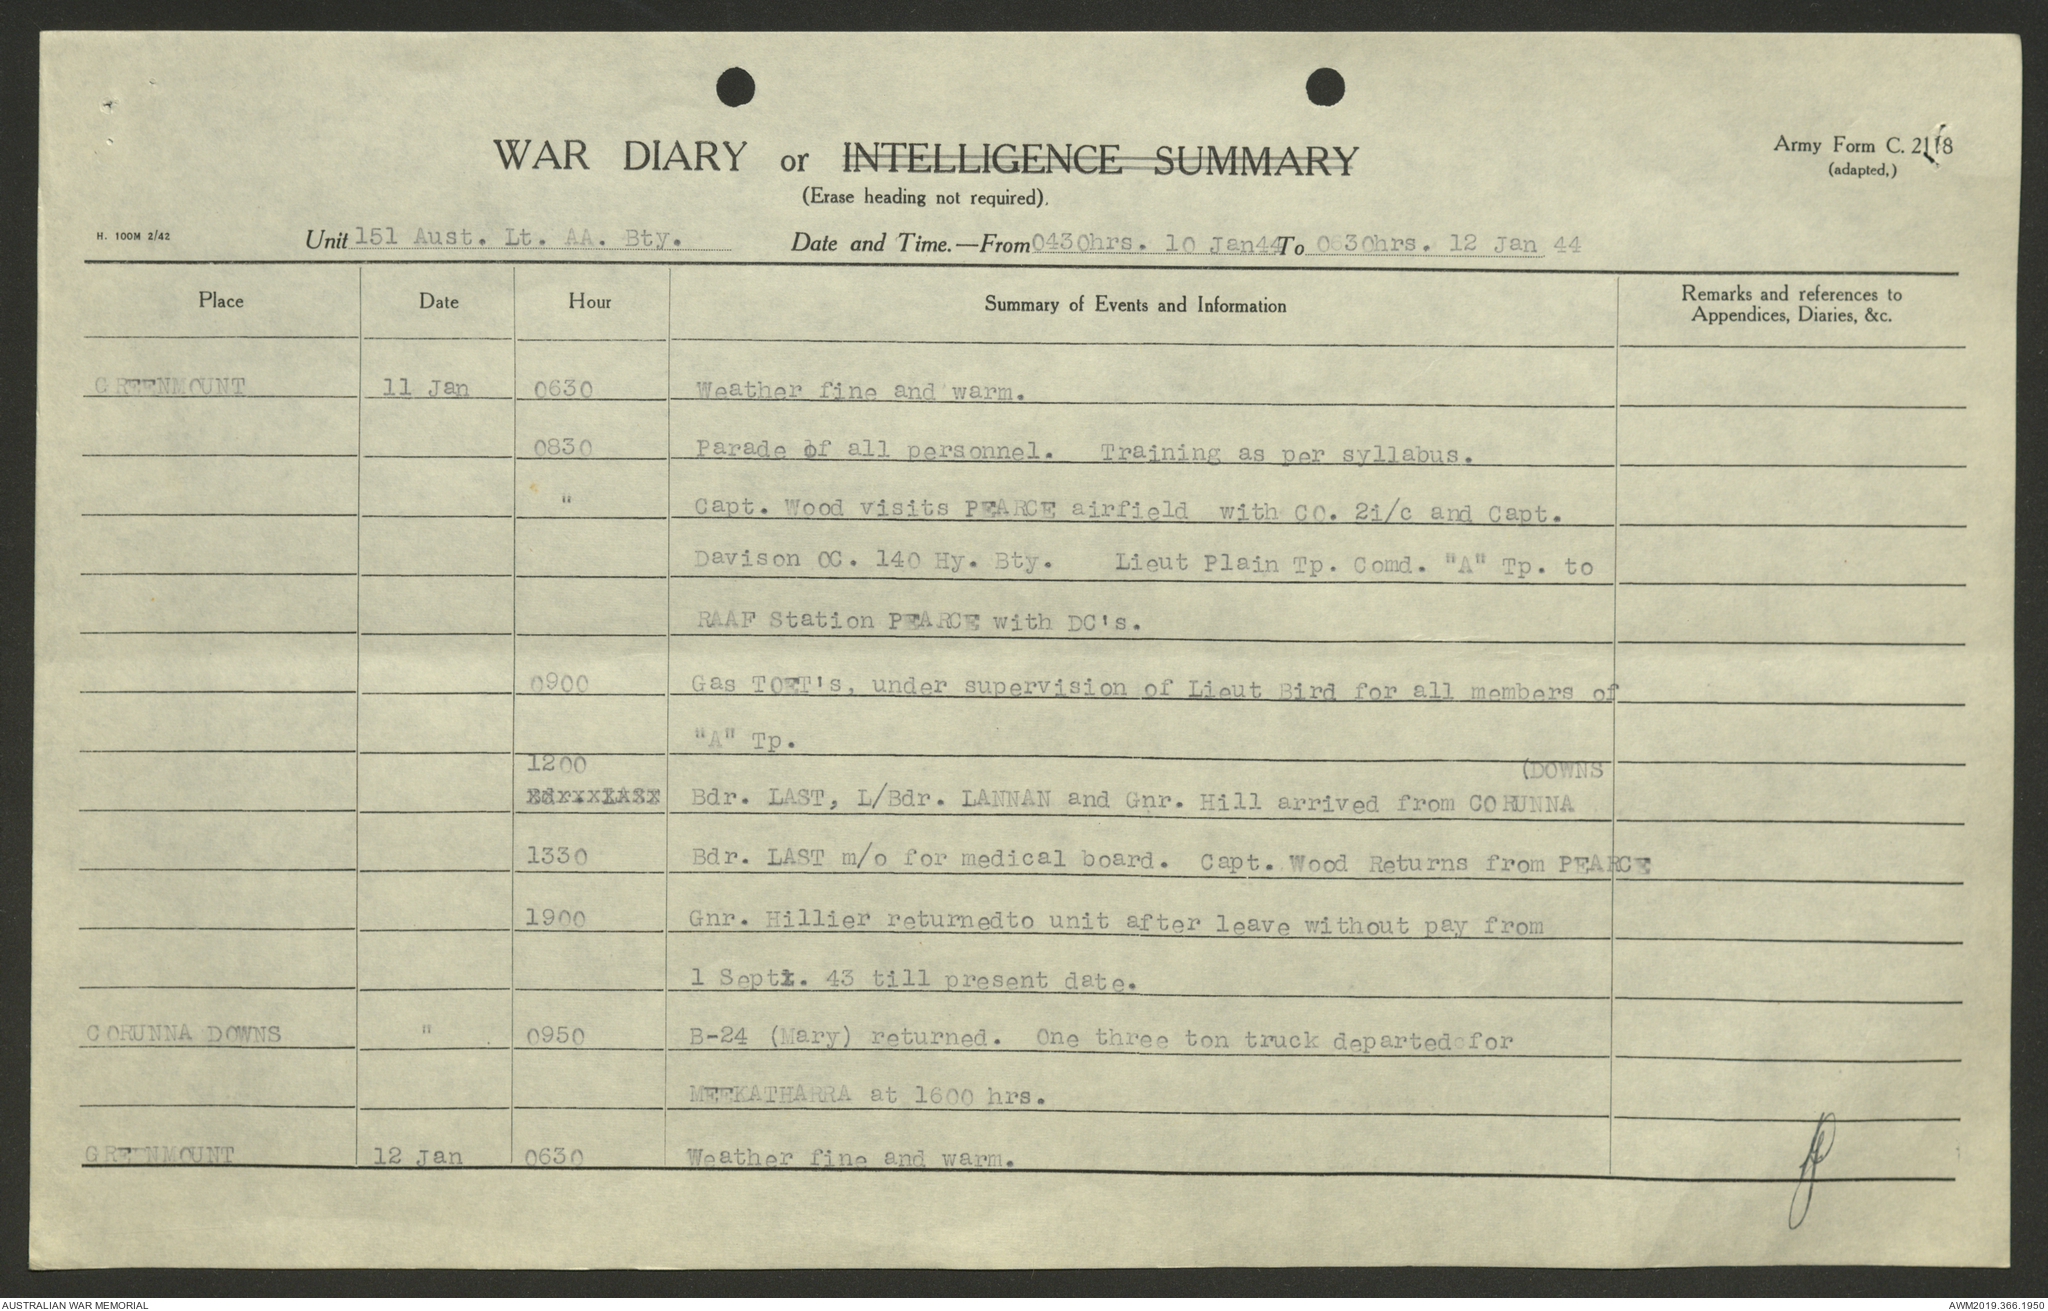 WAR DIARY or INTELLIGENCE SUMMARY
(Erase heading not required).
Army Form C. 2118
(adapted,)
H. 100M 2/42
Unit 151 Aust. Lt. AA. Bty. Date and Time.—From 0430hrs. 10 Jan44 To 0630hrs. 12 Jan 44
Place Date Hour Summary of Events and Information Remarks and references to
Appendices, Diaries, &c.
GREENMOUNT 11 Jan 0630 Weather fine and warm.
0830 Parade of all personnel. Training as per syllabus.
" Capt. Wood visits PEARCE airfield with CO. 2i/c and Capt.
Davison OC. 140 Hy. Bty. Lieut Plain Tp. Comd. "A" Tp. to
RAAF Station PEARCE with DC's.
0900 Gas TOET's, under supervision of Lieut Bird for all members of
"A" Tp.
1200 (DOWNS
Bdr. LAST Bdr. LAST, L/Bdr. LANNAN and Gnr. Hill arrived from CORUNNA
1330 Bdr. LAST m/o for medical board. Capt. Wood Returns from PEARCE
1900 Gnr. Hillier returnedto unit after leave without pay from
1 Septt. 43 till present date.
CORUNNA DOWNS " 0950 B-24 (Mary) returned. One three ton truck departed for
MEEKATHARRA at 1600 hrs.
GREENMOUNT 12 Jan 0630 Weather fine and warm.
AUSTRALIAN WAR MEMORIAL
AWM2019.366.1950